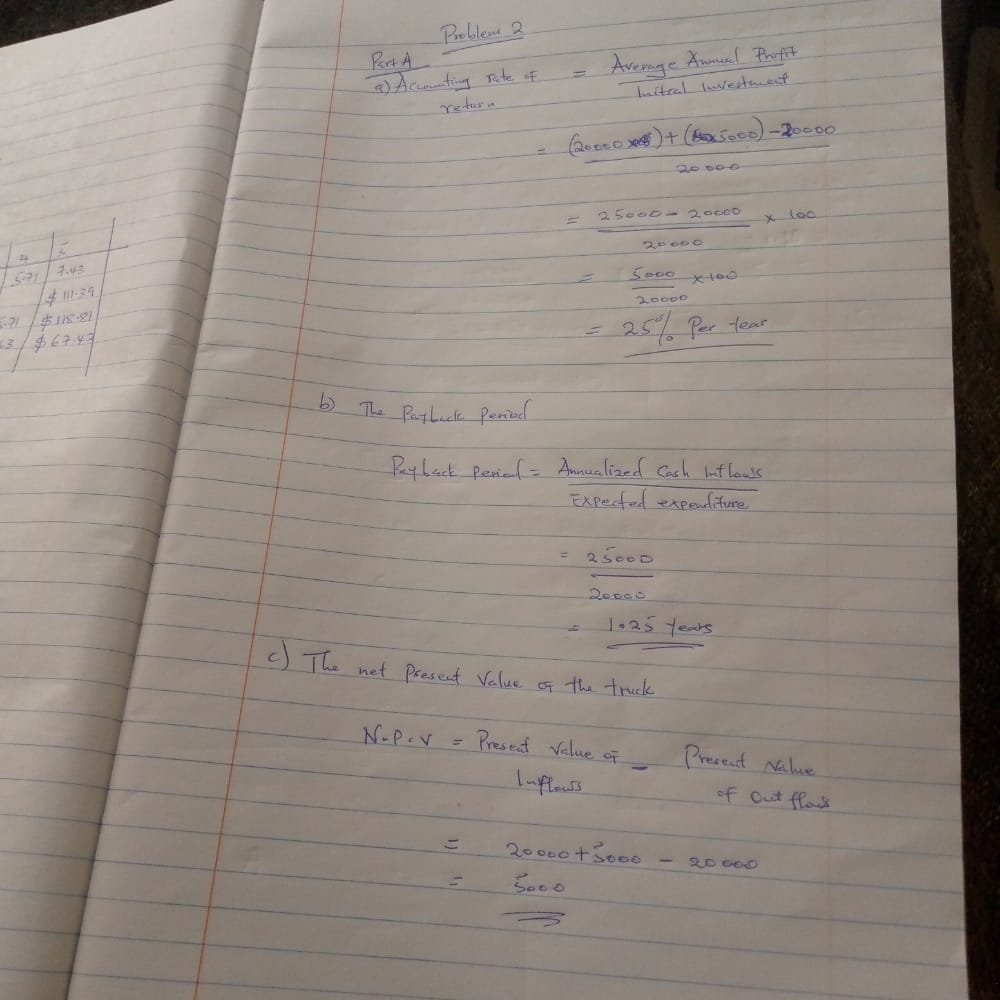 Problem 2
Part A
a) Accounting rate of return = Average Annual Profit
Initial Investment
= (20000) + (5000) - 20000
20000
= 25000 - 20000 x 100
20000
= 5000 x 100
20000
= 25% Per Year
b) The Payback Period
Payback period = Annualized Cash Inflows
Expected expenditure
= 25000
20000
= 1.25 Years
c) The net Present Value of the truck
N.P.V = Present Value of Inflows - Present Value of Outflows
= 20000 + 5000 - 20000
= 5000
4 5
5.71 7.43
$ 111.39
5.71 $ 118.81
63 $ 67.43